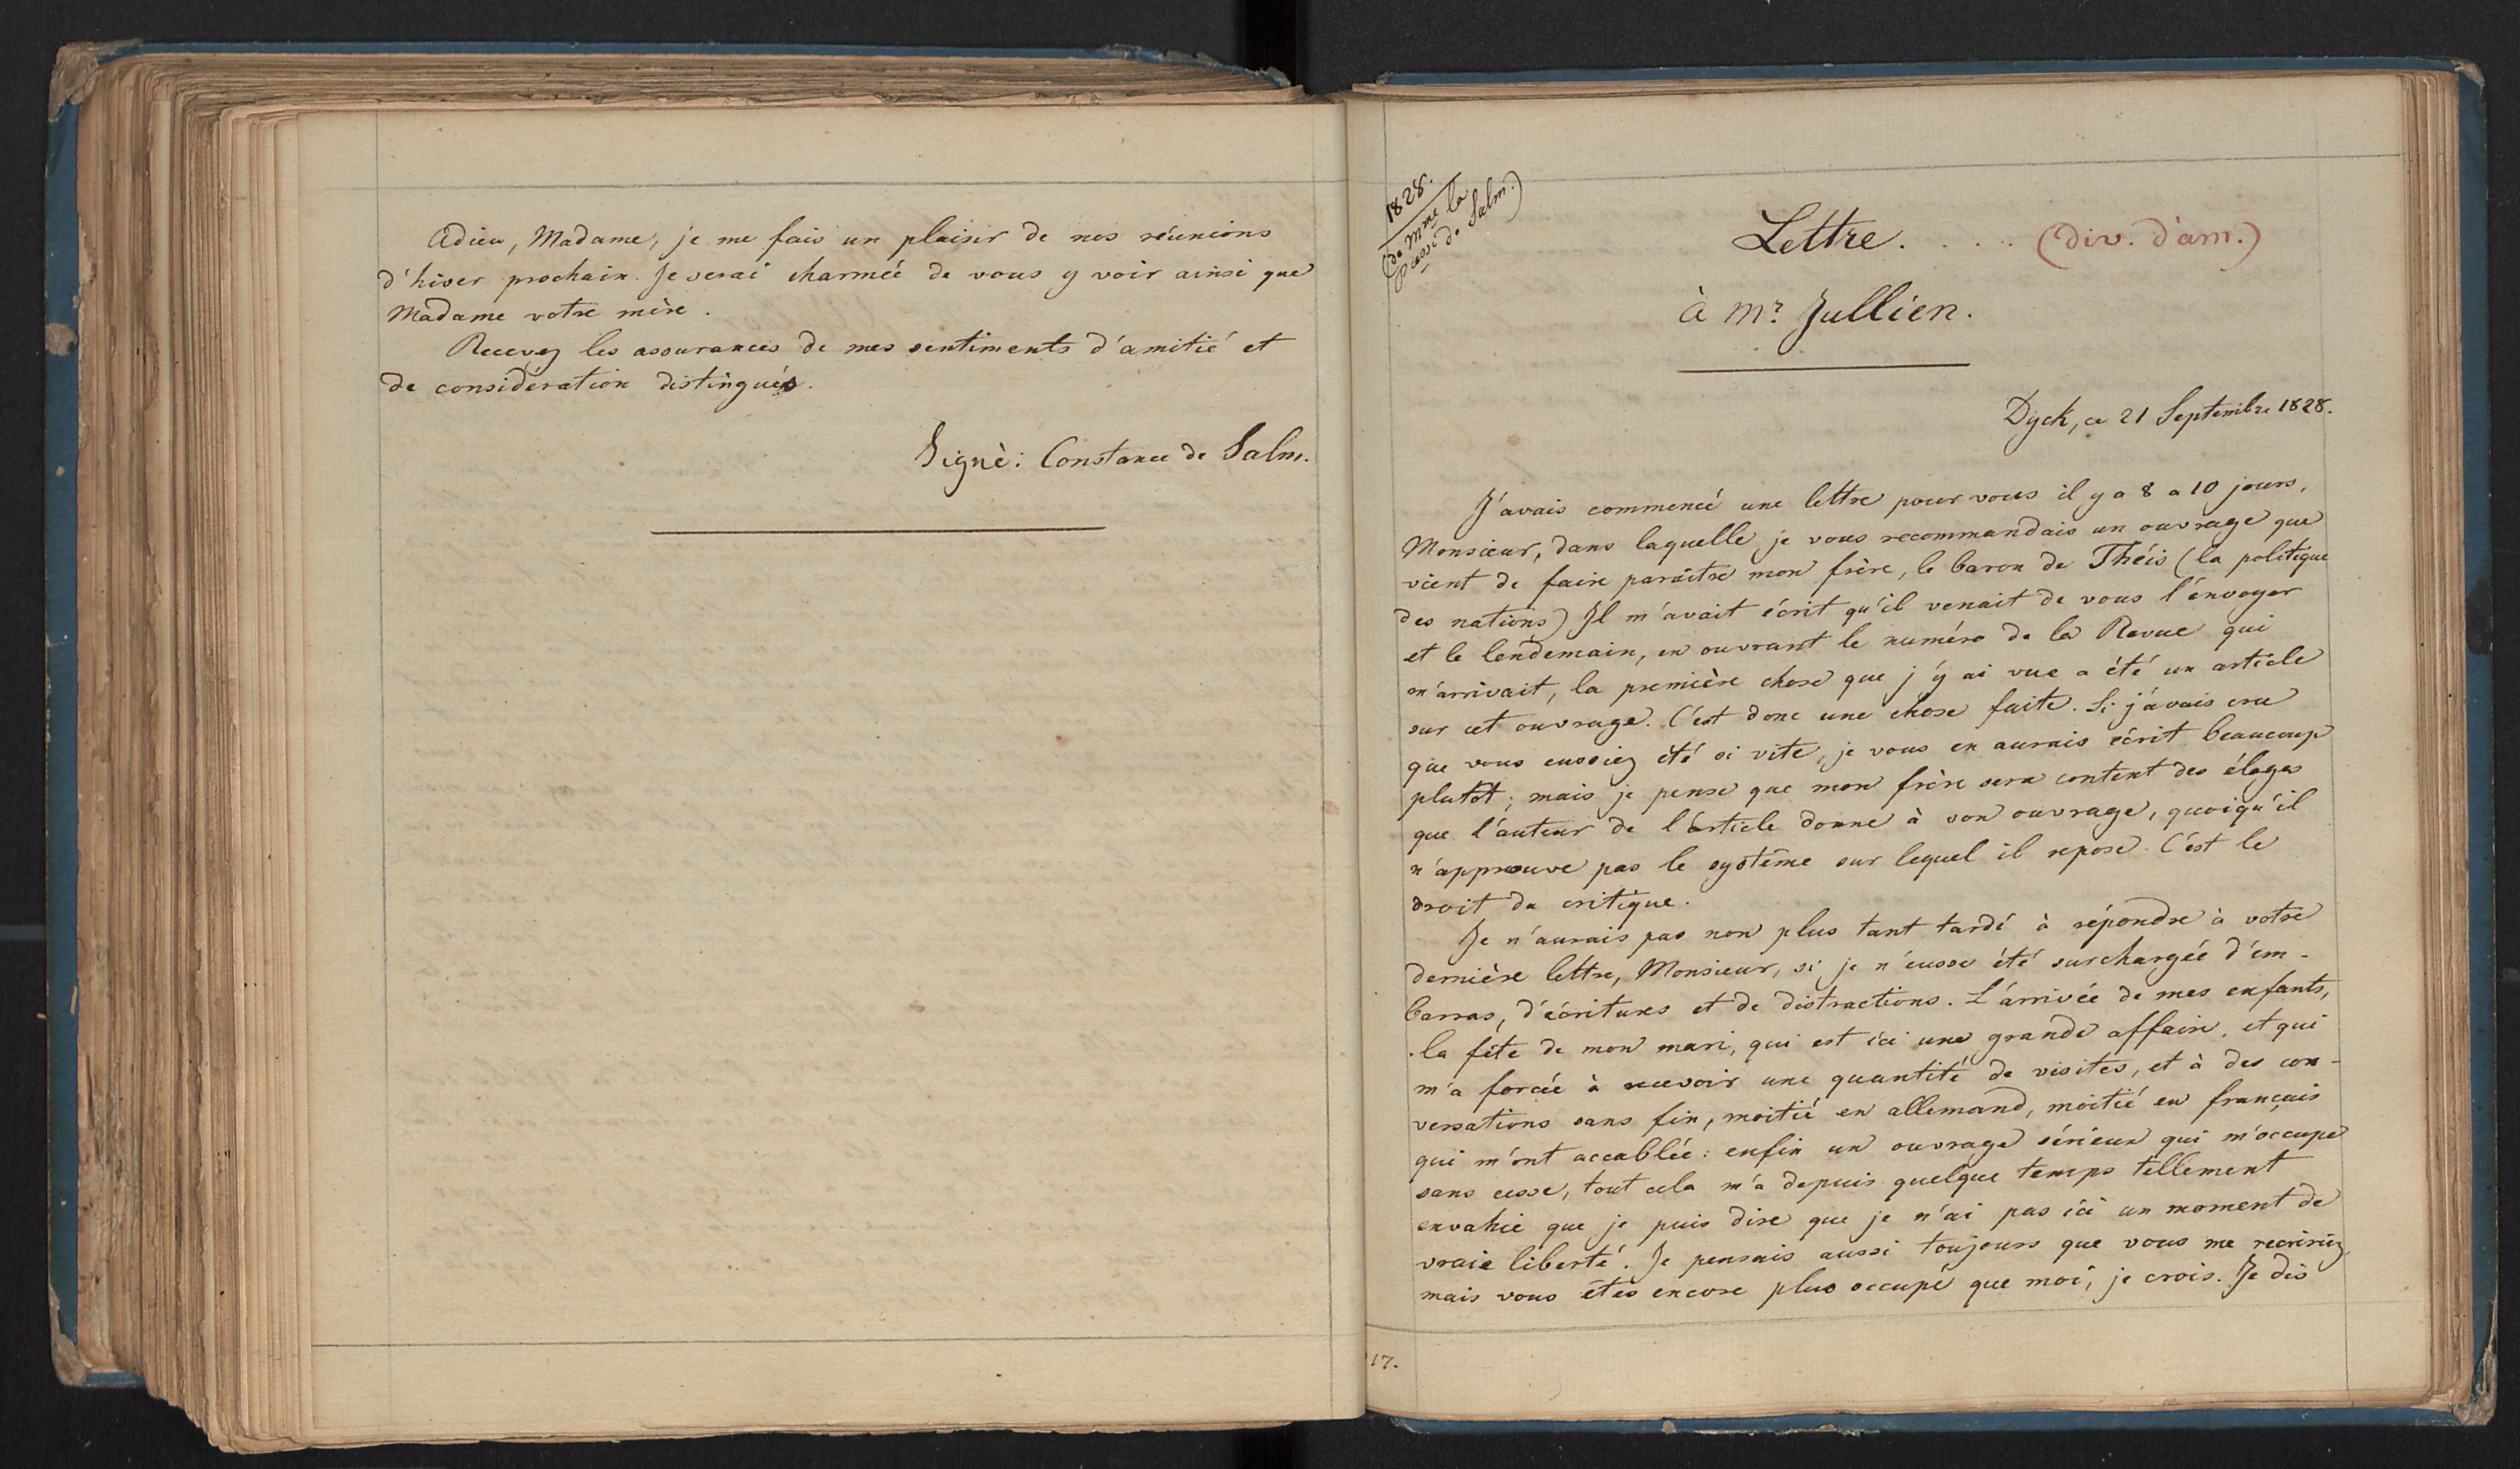 Adieu, Madame, je me fais un plaisir de nos réunions
d'hiver prochain. Je serai charmée de vous y voir ainsi que
Madame votre mère.
Recevez les assurances de mes sentiments d'amitié et
de considération distingués.
Signé: Constance de Salm.
1828.
(de Mme la
Pcesse de Salm.)
Lettre. . . . . (div. d'am.)
à Mr. Jullien.
Dyck, ce 21 Septembre 1828.
J'avais commencé une lettre pour vous il y a 8 a 10 jours,
Monsieur, dans laquelle je vous recommandais un ouvrage que
vient de faire paraître mon frère, le baron de Théis (la politique
des nations) Il m'avait écrit qu'il venait de vous l'envoyer
et le lendemain, en ouvrant le numéro de la Revue qui
m'arrivait, la première chose que j'y ai vue a été un article
sur cet ouvrage. C'est donc une chose faite. Si j'avais cru
que vous eussiez été si vite, je vous en aurais écrit beaucoup
plutôt; mais je pense que mon frère sera content des éloges
que l'auteur de l'article donne à son ouvrage, quoiqu'il
n'approuve pas le système sur lequel il repose. C'est le
droit du critique.
Je n'aurais pas non plus tant tardé à répondre à votre
dernière lettre, Monsieur, si je n'eusse été surchargée d'em-
barras, d'écritures et de distractions. L'arrivée de mes enfants,
la fête de mon mari, qui est ici une grande affaire, et qui
m'a forcée à recevoir une quantité de visites, et à des con-
versations sans fin, moitié en allemand, moitié en français
qui m'ont accablée: enfin un ouvrage sérieux qui m'occupe
sans cesse, tout cela m'a depuis quelque temps tellement
envahie que je puis dire que je n'ai pas ici un moment de
vraie liberté. Je pensais aussi toujours que vous me recririez,
mais vous êtes encore plus occupé que moi, je crois. Je dis
17.